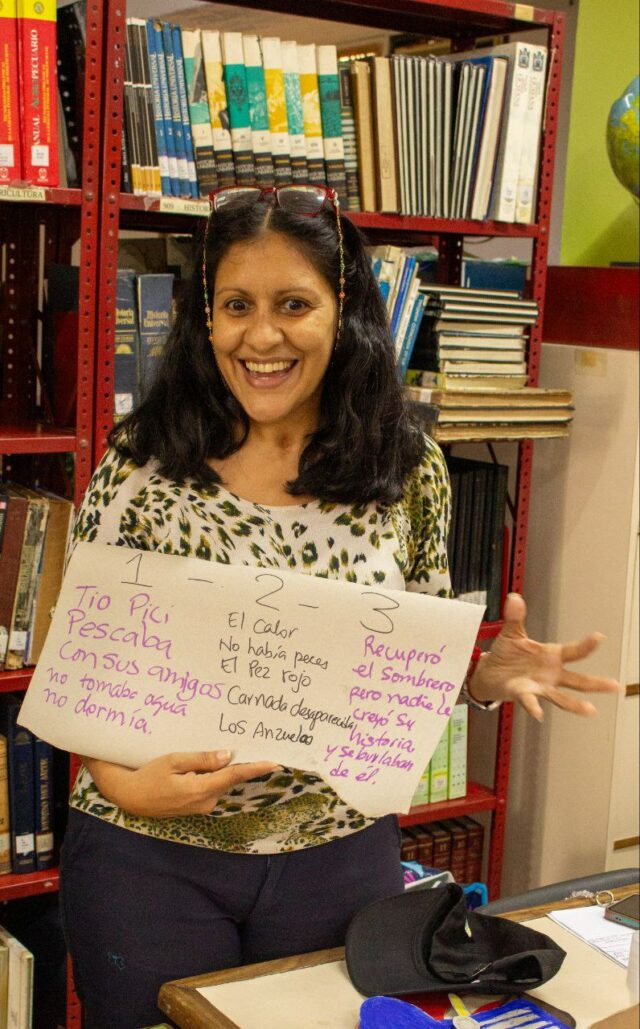 MANUAL AGROPECUARIO
909 - HISTORIA
Historia
Universal
1 - 2 - 3
Tio Pici
Pescaba
Con sus amigos
no tomaba agua
no dormía.
El Calor
No había peces
El Pez rojo
Carnada desaparecida
Los Anzuelos
Recuperó
el sombrero
pero nadie le
creyó su
historia
y se burlaban
de él.